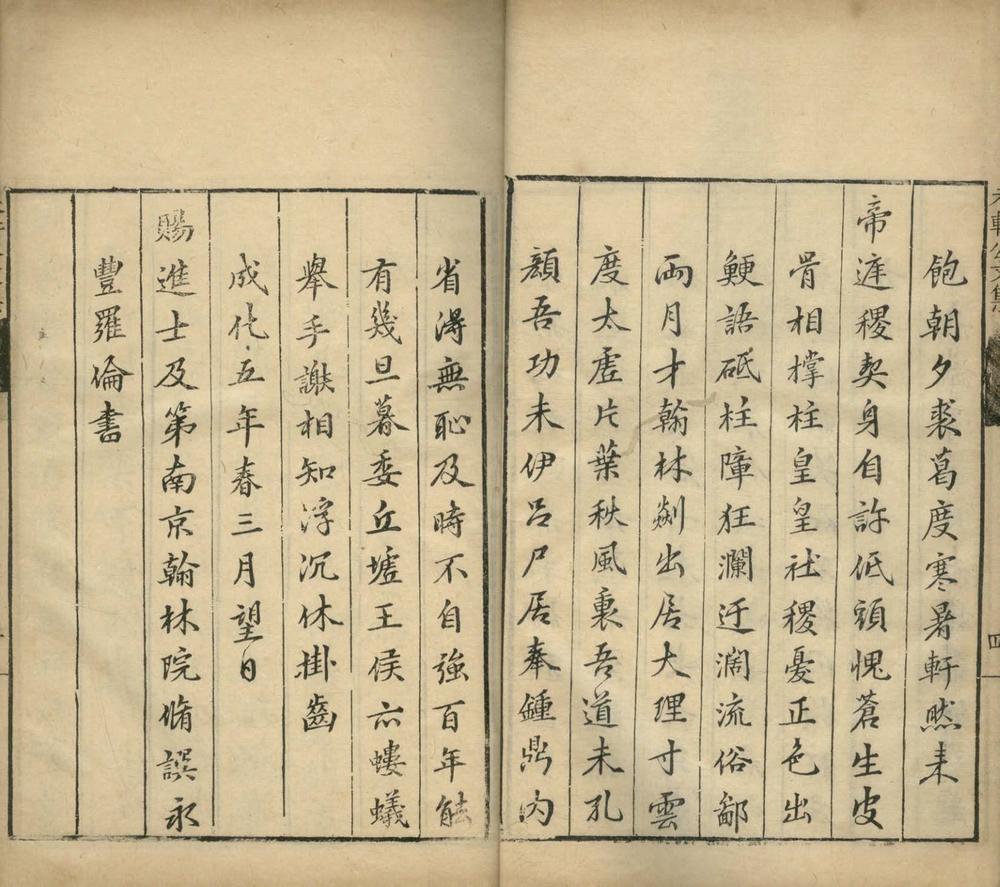 飽朝夕裘葛度寒暑軒然來
帝遅稷契身自許低頭愧蒼生皮
骨相撑柱皇皇社稷憂正色出
鯁語砥柱障狂瀾迂濶流俗鄙
两月才翰林剡出居大理寸雲
度太虛片葉秋風裏吾道未孔
顔吾功未伊呂尸居奉鍾鼎内
省淂無恥及時不自強百年能
有幾旦暮委丘墟王侯亦螻蟻
舉手謝相知浮沉休掛齒
成化五年春三月望日
賜進士及第南京翰林院脩譔永
豐羅倫書
四